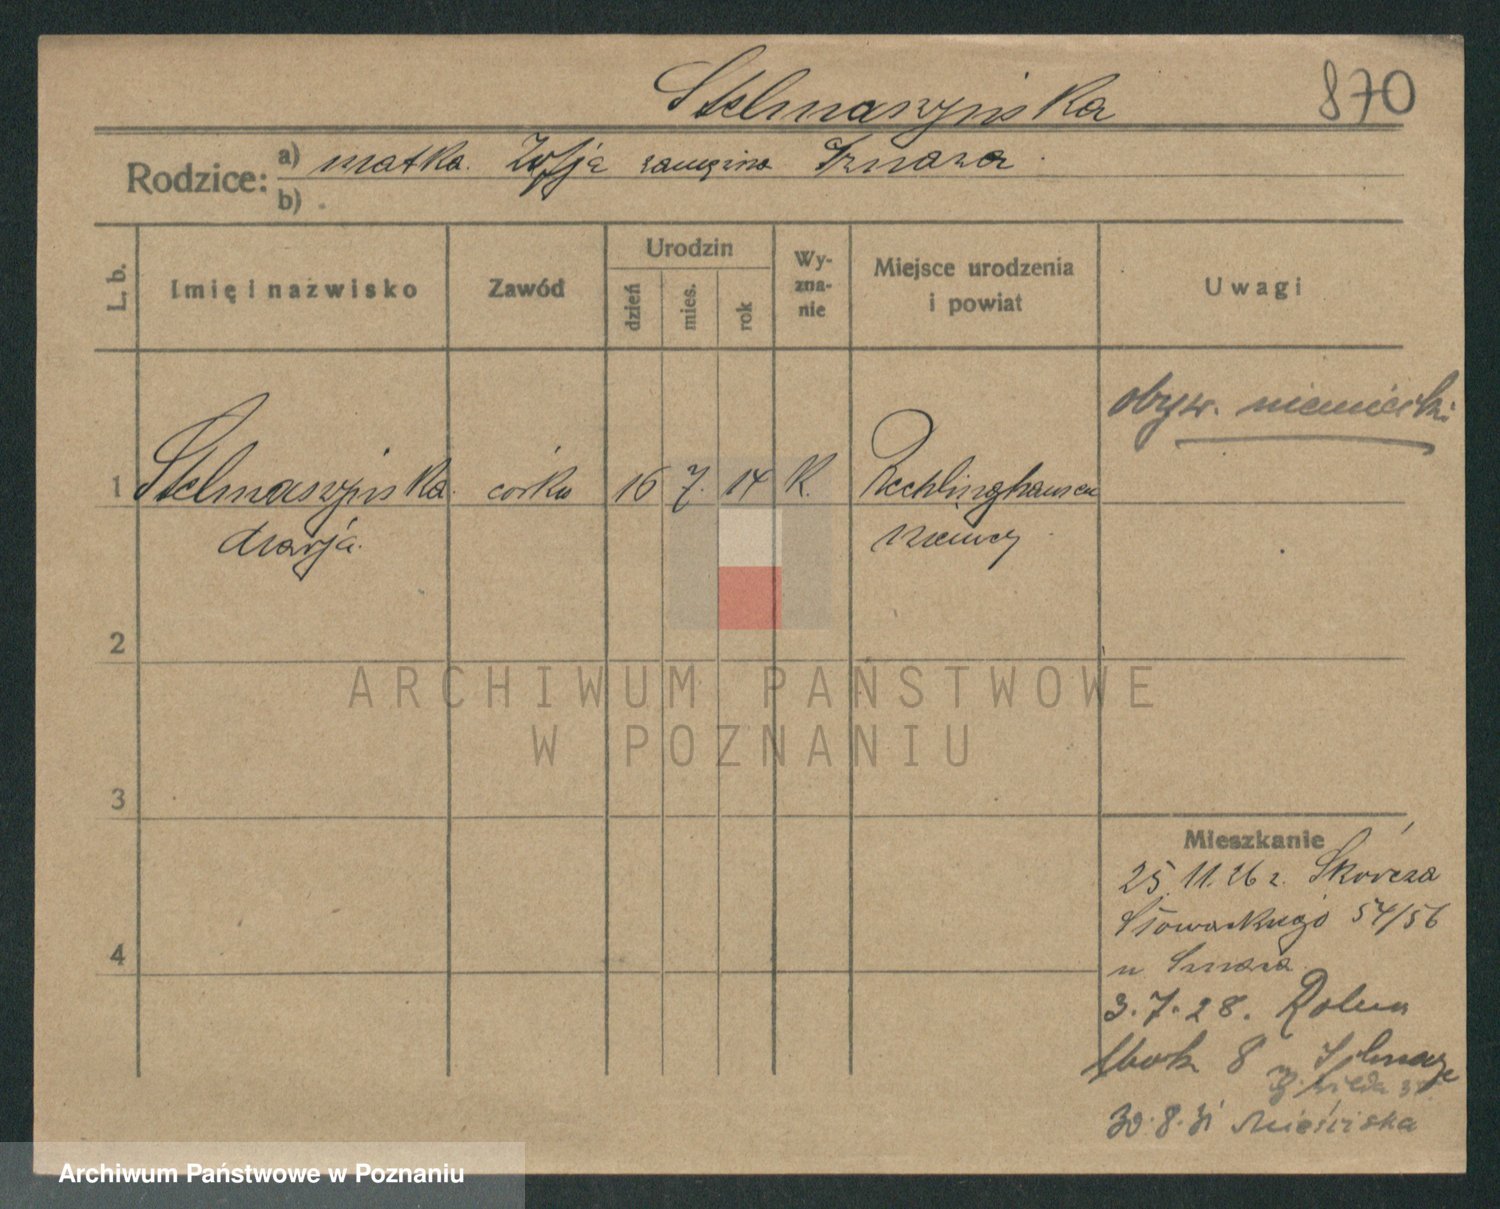 Stelmaszyńska 870
Rodzice: a) matka Zofja zamężna
b)
L. b. Imię i nazwisko Zawód Urodzin dzień mies. rok Wy-zna-nie Miejsce urodzenia i powiat Uwagi
obyw. niemiecki
1 Stelmaszyńska córka 16 7. 14 K. Recklinghausen
Marja. Niemcy
2
3
4
Mieszkanie
25 11. 26 z. Skórcza
Słowackiego 54/56
u
3.7.28.
8
30.8.31
ARCHIWUM PAŃSTWOWE
W POZNANIU
Archiwum Państwowe w Poznaniu